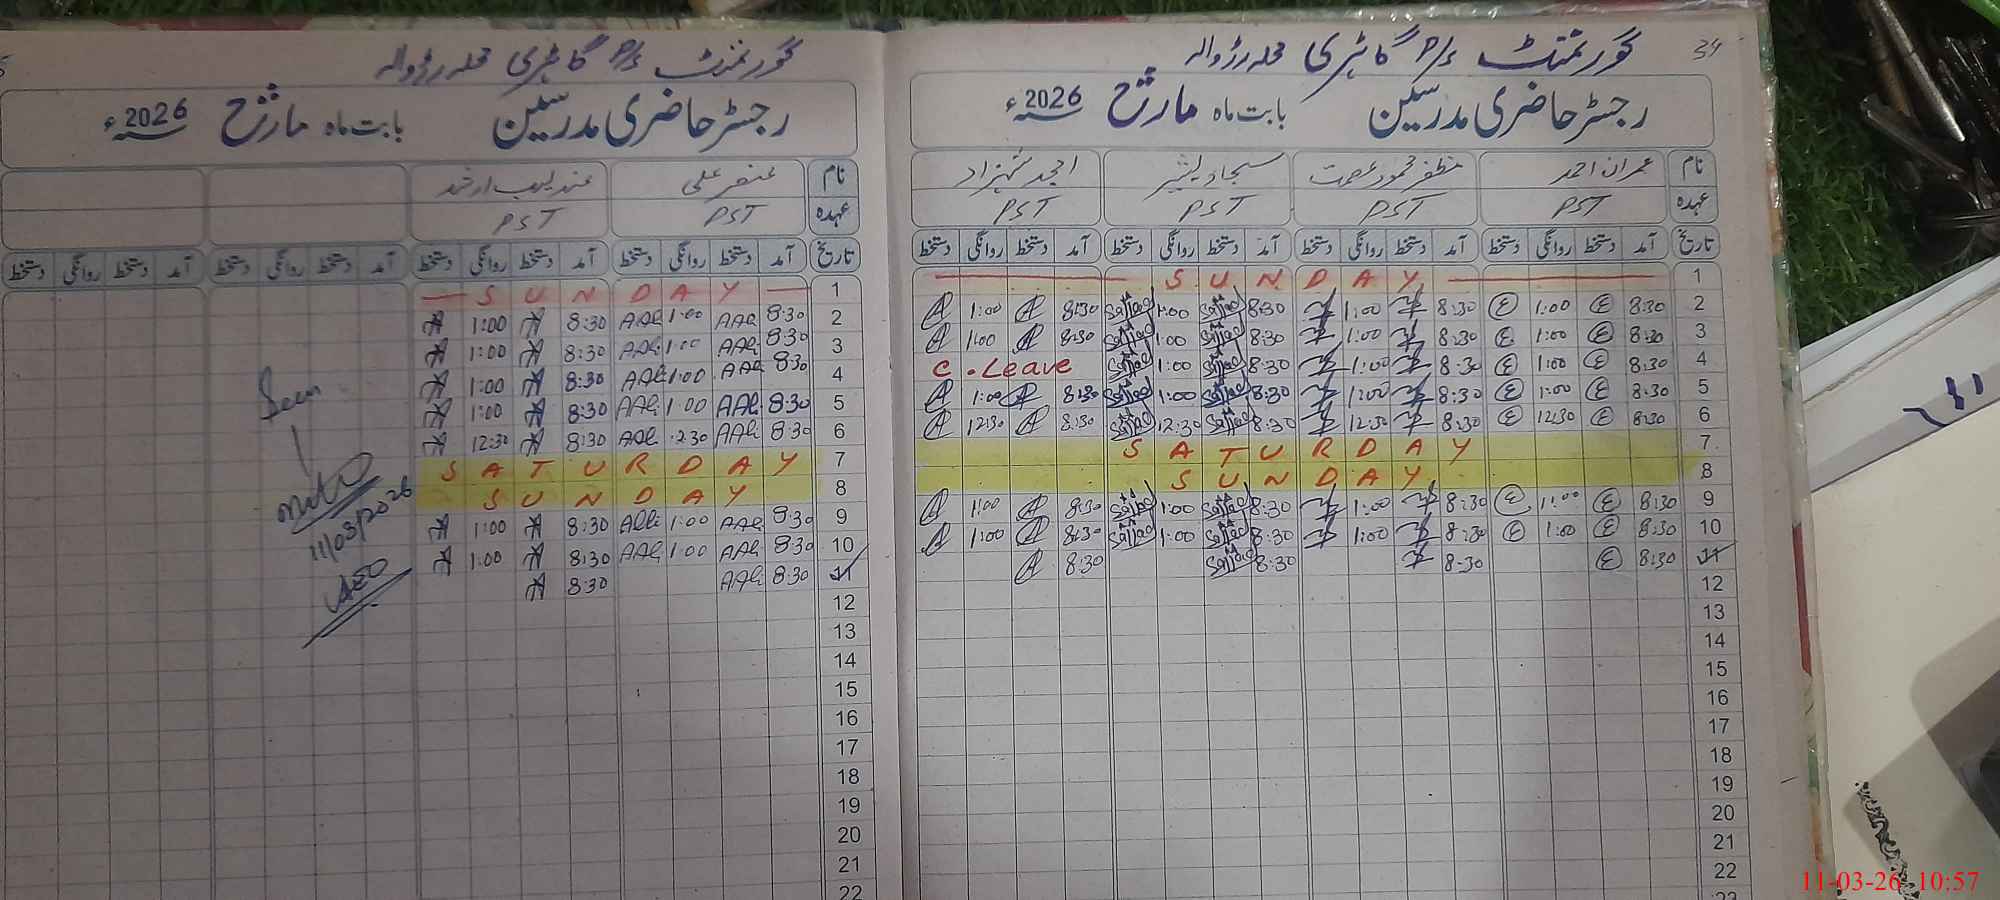 34
گورنمنٹ P/S گاہری محلہ رڑوالہ
رجسٹر حاضری مدرسین بابت ماہ مارچ 2026ء
نام عمران احمد مظفر محمود عصمت سجاد بشیر امجد شہزاد
عہدہ PST PST PST PST
تاریخ آمد دستخط روانگی دستخط آمد دستخط روانگی دستخط آمد دستخط روانگی دستخط آمد دستخط روانگی دستخط
1 SUNDAY
2 8:30 E 1:00 E 8:30 1:00 8:30 Sajjad 1:00 Sajjad 8:30 A 1:00 A
3 8:30 E 1:00 E 8:30 1:00 8:30 Sajjad 1:00 Sajjad 8:30 A 1:00 A
4 8:30 E 1:00 E 8:30 1:00 8:30 Sajjad 1:00 Sajjad C. Leave
5 8:30 E 1:00 E 8:30 1:00 8:30 Sajjad 1:00 Sajjad 8:30 A 1:00 A
6 8:30 E 12:30 E 8:30 12:30 8:30 Sajjad 12:30 Sajjad 8:30 A 12:30 A
7 SATURDAY
8 SUNDAY
9 8:30 E 1:00 E 8:30 1:00 8:30 Sajjad 1:00 Sajjad 8:30 A 1:00 A
10 8:30 E 1:00 E 8:30 1:00 8:30 Sajjad 1:00 Sajjad 8:30 A 1:00 A
11 8:30 E 8:30 8:30 Sajjad 8:30 A
12
13
14
15
16
17
18
19
20
21
22
23
گورنمنٹ P/S گاہری محلہ رڑوالہ
رجسٹر حاضری مدرسین بابت ماہ مارچ 2026ء
نام عنصر علی عندلیب ارشد
عہدہ PST PST
تاریخ آمد دستخط روانگی دستخط آمد دستخط روانگی دستخط آمد دستخط روانگی دستخط آمد دستخط روانگی دستخط
1 SUNDAY
2 8:30 AALi 1:00 AALi 8:30 A 1:00 A
3 8:30 AALi 1:00 AALi 8:30 A 1:00 A
4 8:30 AALi 1:00 AALi 8:30 A 1:00 A
5 8:30 AALi 1:00 AALi 8:30 A 1:00 A
6 8:30 AALi 12:30 AALi 8:30 A 12:30 A
7 SATURDAY
8 SUNDAY
9 8:30 AALi 1:00 AALi 8:30 A 1:00 A
10 8:30 AALi 1:00 AALi 8:30 A 1:00 A
11 8:30 AALi 8:30 A
12
13
14
15
16
17
18
19
20
21
22
Seen
11/03/2026
AEO
11-03-26 10:57